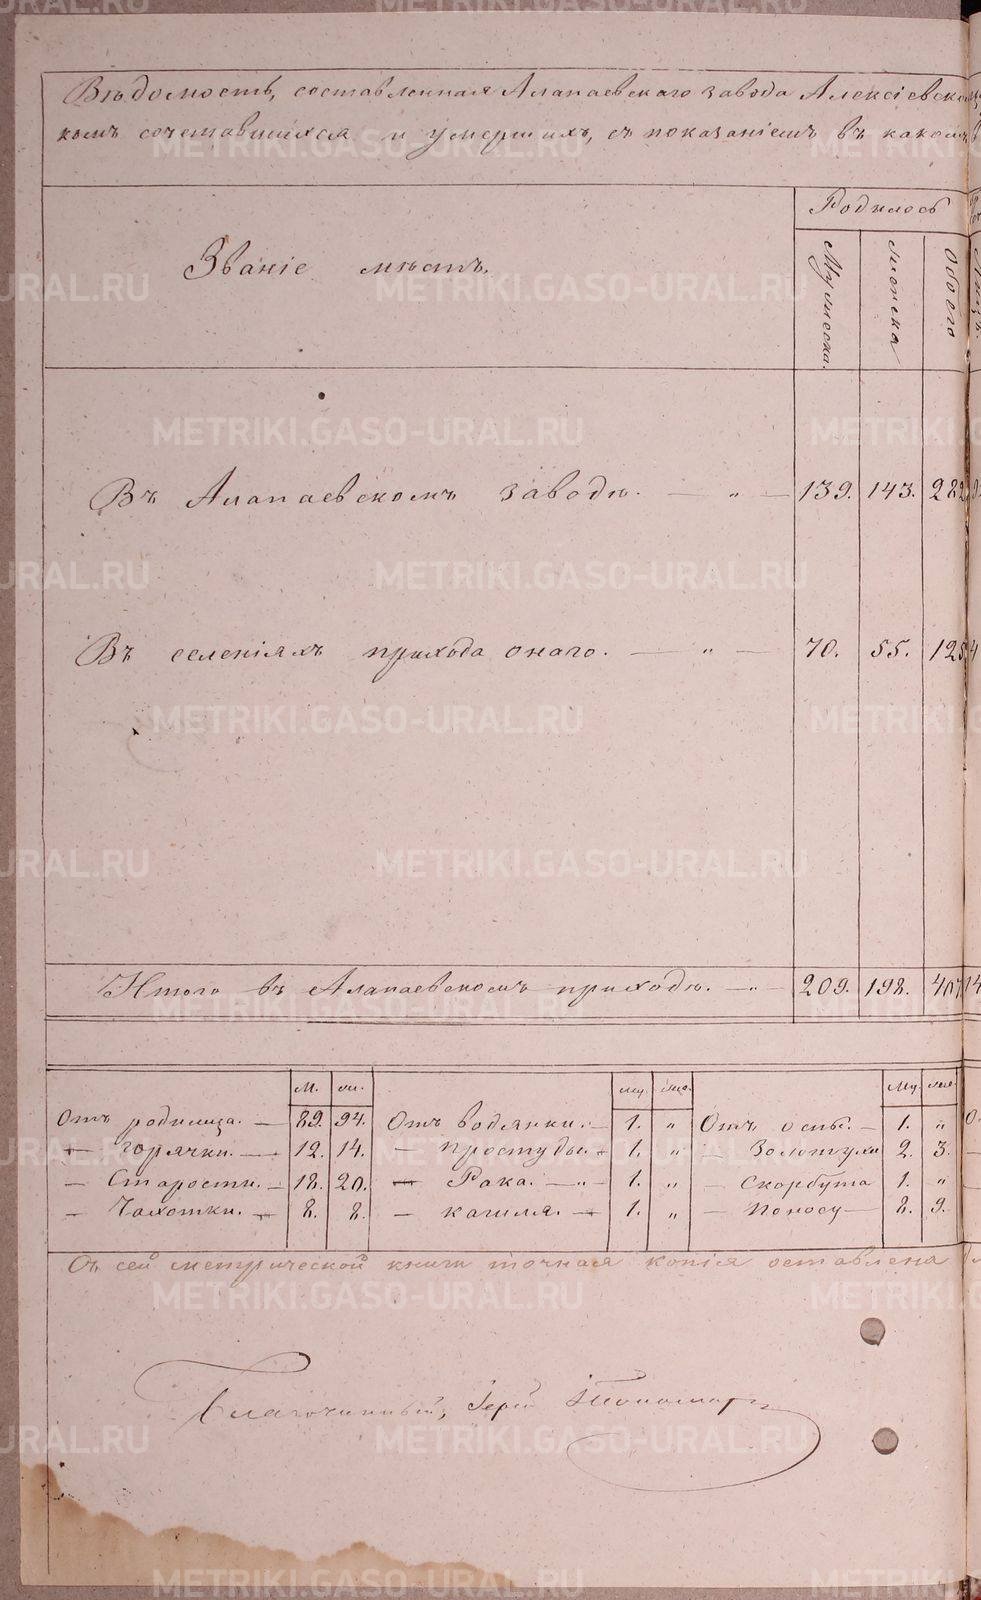 Вѣдомость, составленная Алапаевскаго завода Алексіевско
комъ сочетавшихся и умершихъ, съ показаніемъ въ какомъ
Званіе мѣстъ.
Родилось
Мужеска.
женска
обоего
Въ Алапаевскомъ заводѣ. — „ — 139. 143. 282
Въ селеніяхъ прихода онаго. — „ — 70. 55. 125
Итого въ Алапаевскомъ приходѣ. — „ — 209. 198. 407
м. ж. му. же. му. же.
Отъ родимца. — 89. 94. Отъ водянки. — 1. „ Отъ оспы. — 1. „
— горячки. — 12. 14. — простуды. — 1. „ — Золотухи 2. 3.
— Старости. — 18. 20. — Рака. — „ — 1. „ — Скорбута 1. „
— Чахотки. — 8. 8. — кашля. — 1. „ — Поносу — 8. 9.
Съ сей метрической книги точная копія оставлена
Благочинный, Іерей Пономаревъ
METRIKI.GASO-URAL.RU